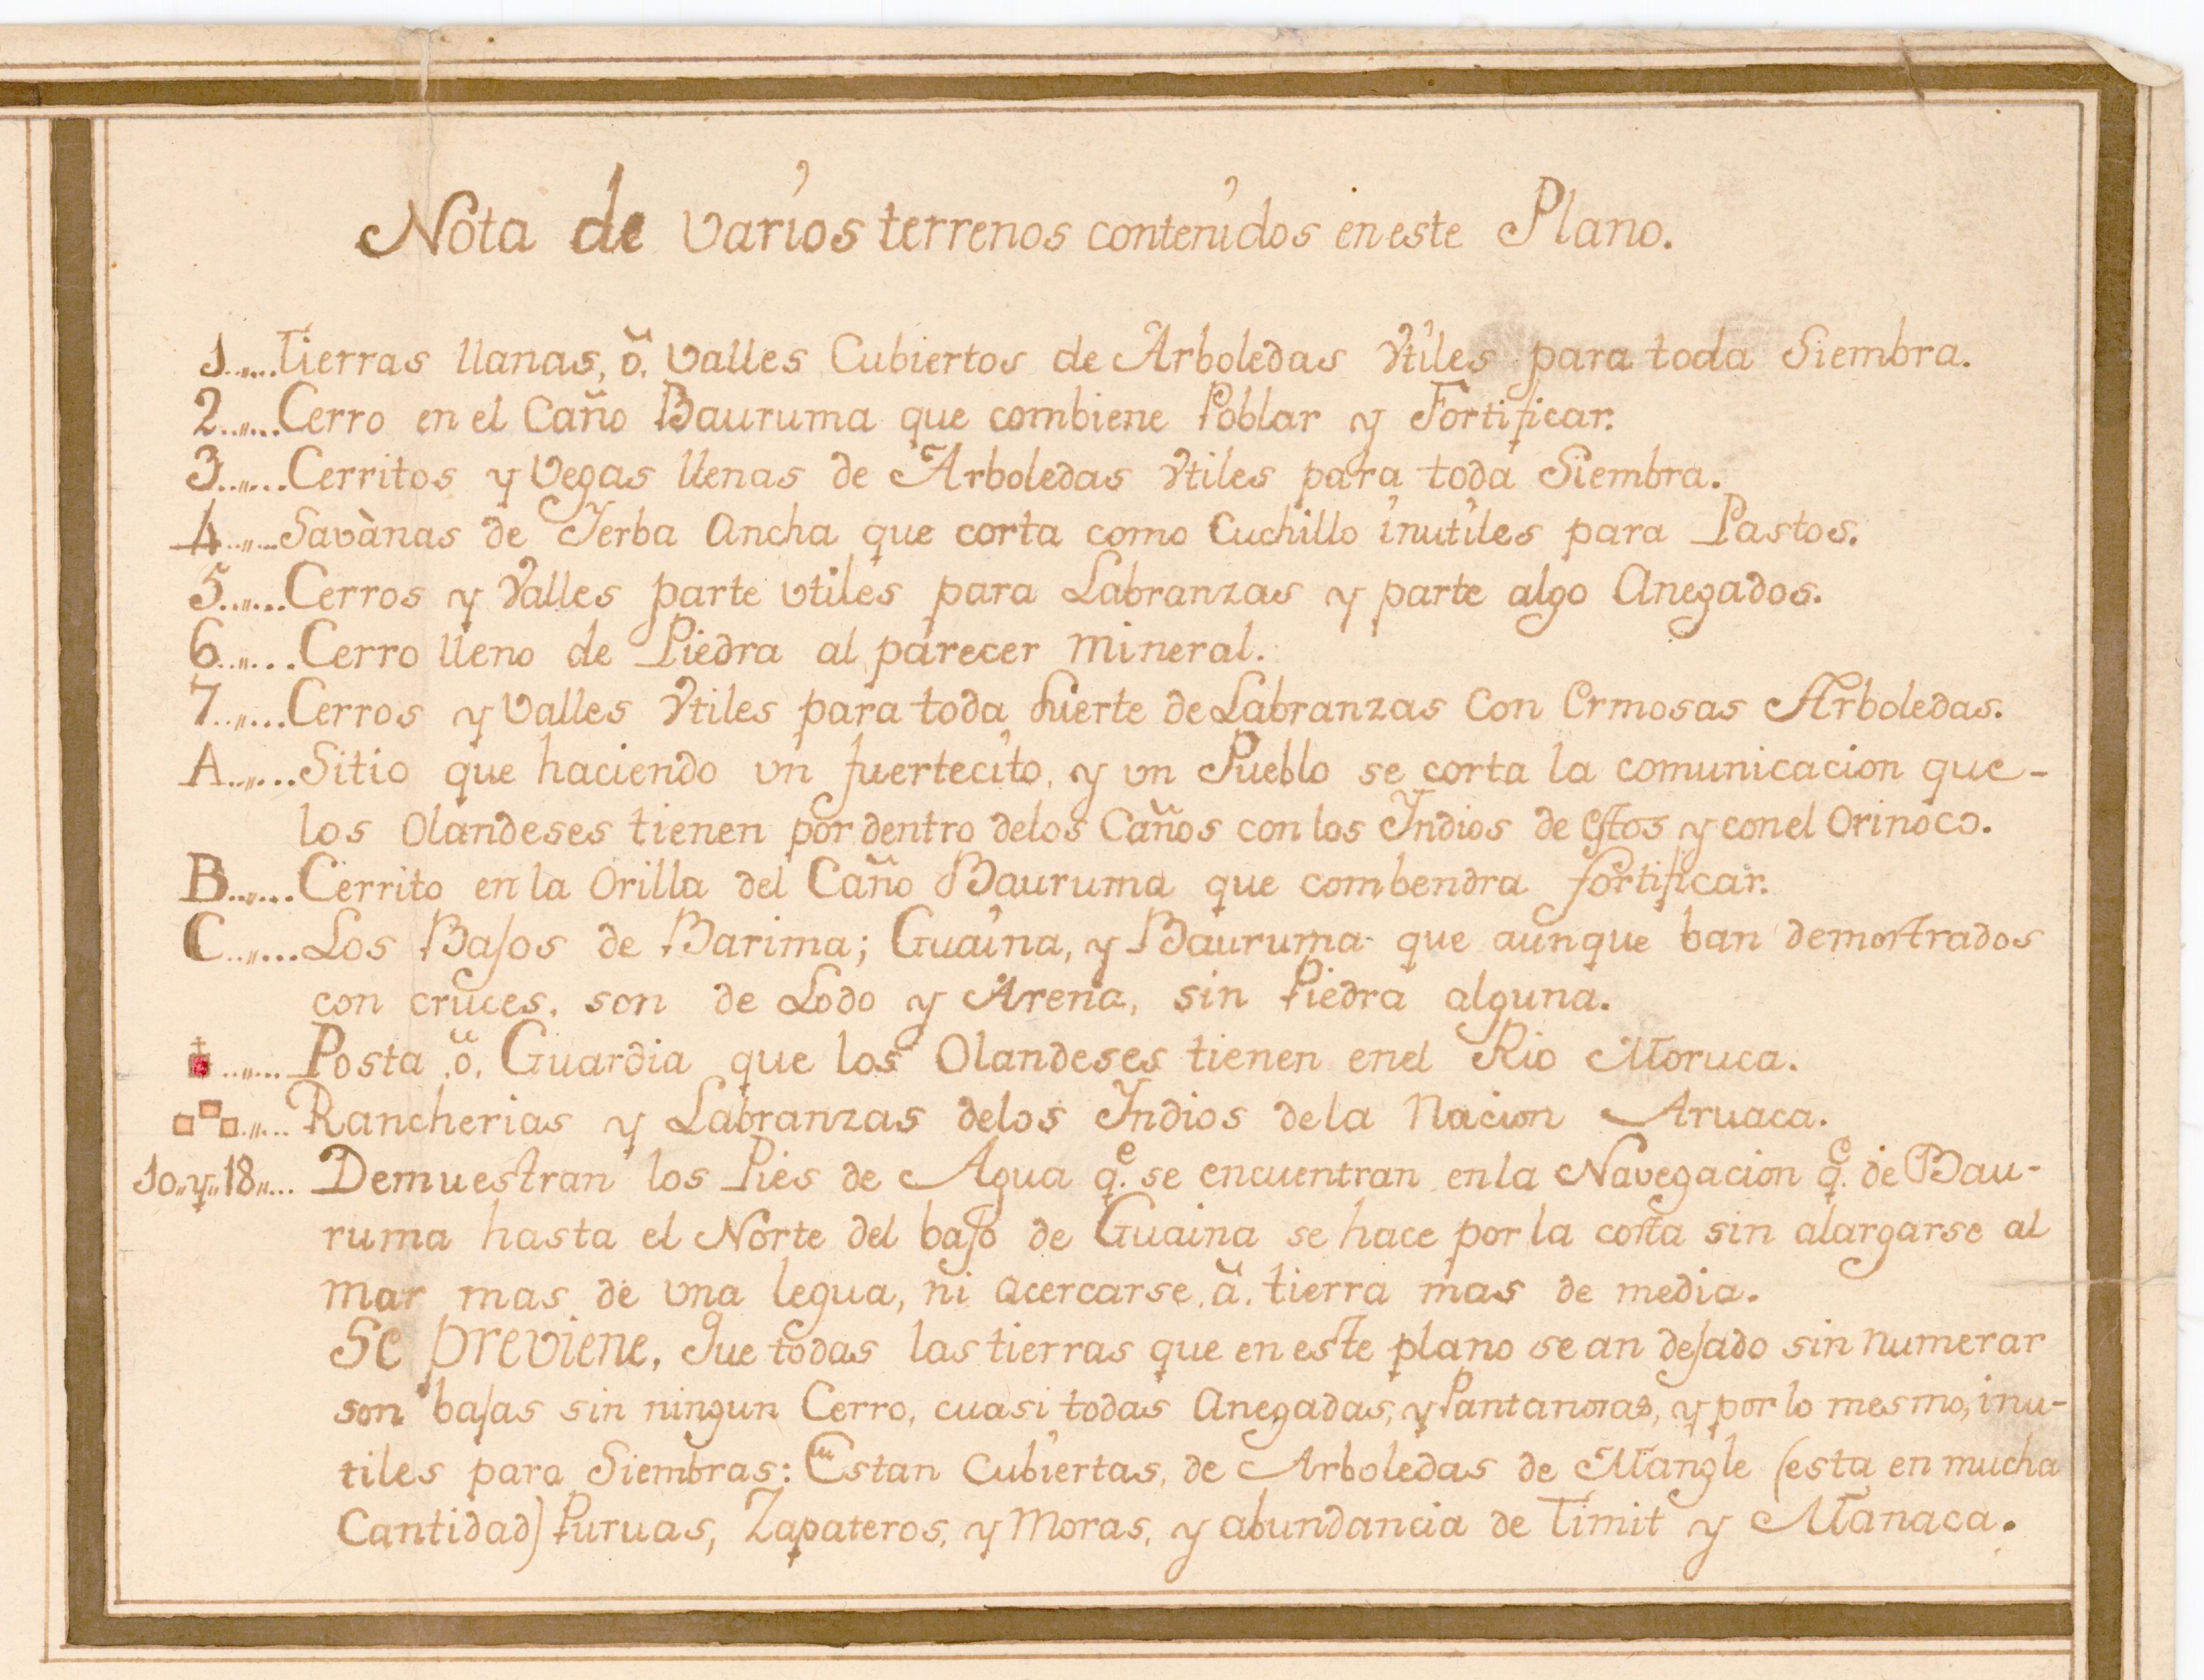 Nota de varios terrenos contenidos en este Plano.
1..,,...Tierras llanas, ö. valles Cubiertos de Arboledas Ytiles para toda Siembra.
2..,,...Cerro en el Caño Bauruma que combiene Poblar y Fortificar.
3..,,...Cerritos y Vegas llenas de Arboledas Ytiles para toda Siembra.
4..,,...Savànas de Jerba Ancha que corta como Cuchillo inutiles para Pastos.
5..,,...Cerros y Valles parte vtiles para Labranzas y parte algo Anegados.
6..,,...Cerro lleno de Piedra al parecer mineral.
7..,,...Cerros y Valles Ytiles para toda suerte de Labranzas Con Ermosas Arboledas.
A..,,...Sitio que haciendo vn fuertecito, y vn Pueblo se corta la comunicacion que-
los Olandeses tienen por dentro delos Caños con los Indios de estos y conel Orinoco.
B..,,...Cerrito en la Orilla del Caño Bauruma que combendra fortificar.
C..,,...Los Bajos de Barima; Guaina, y Bauruma que aunque ban demostrados
con cruces, son de Lodo y Arena, sin Piedra alguna.
..,,...Posta .ö. Guardia que los Olandeses tienen enel Rio Moruca.
..,,...Rancherias y Labranzas delos Indios dela Nacion Aruaca.
10,,y,,18,,... Demuestran los Pies de Agua q.e se encuentran en la Navegacion q.e de Bau-
ruma hasta el Norte del bajo de Guaina se hace por la costa sin alargarse al
mar mas de vna legua, ni acercarse .ä. tierra mas de media.
Se previene, Que todas las tierras que en este plano se an dejado sin numerar
son bajas sin ningun Cerro, cuasi todas Anegadas, y Pantanosas, y por lo mesmo, inu-
tiles para Siembras: Estan Cubiertas, de Arboledas de Mangle (esta en mucha
Cantidad) Puruas, Zapateros, y Moras, y abundancia de Timit y Manaca.